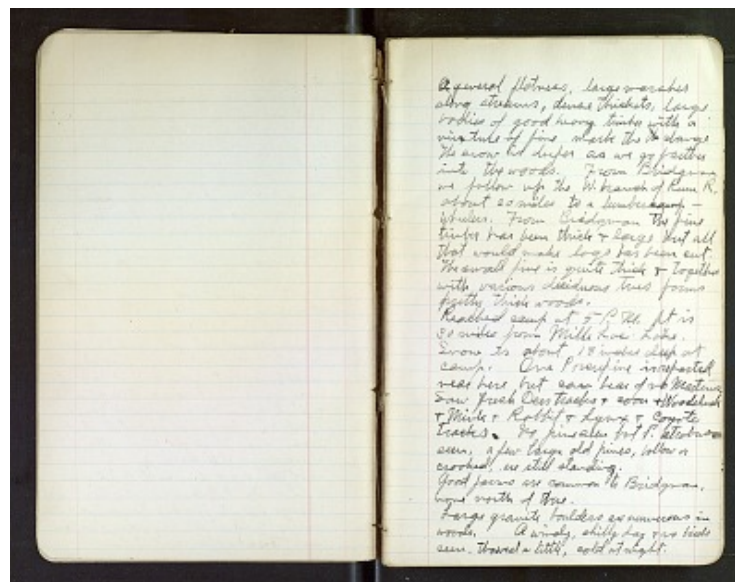 A general flatness, large marshes
along streams, dense thickets, large
bodies of good heavy timber with a
mixture of pine mark the change
The snow is deeper as we go farther
into the woods. From Bridgman
we follow up the W. branch of Rum R.
about 20 miles to a lumber camp –
From Bridgman the pine
timber has been thick & large but all
that would make logs has been cut.
The small pine is quite thick & together
with various deciduous trees forms
pretty thick woods.
Reached camp at 5 P.M. It is
30 miles from Mille Lac Lake.
Snow is about 18 inches deep at
camp. One Porcupine is reported
near here but can hear of no Martens
Saw fresh Deer tracks & &
& Mink & Rabbit & Lynx & Coyote
tracks. No pine seen but P. strobus
seen, a few large old pines, hollow or
crooked, are still standing.
Good farms are common to Bridgman,
none north of there.
Large granite boulders are numerous in
woods. A windy, chilly day & no birds
seen. Thawed a little, cold at night.